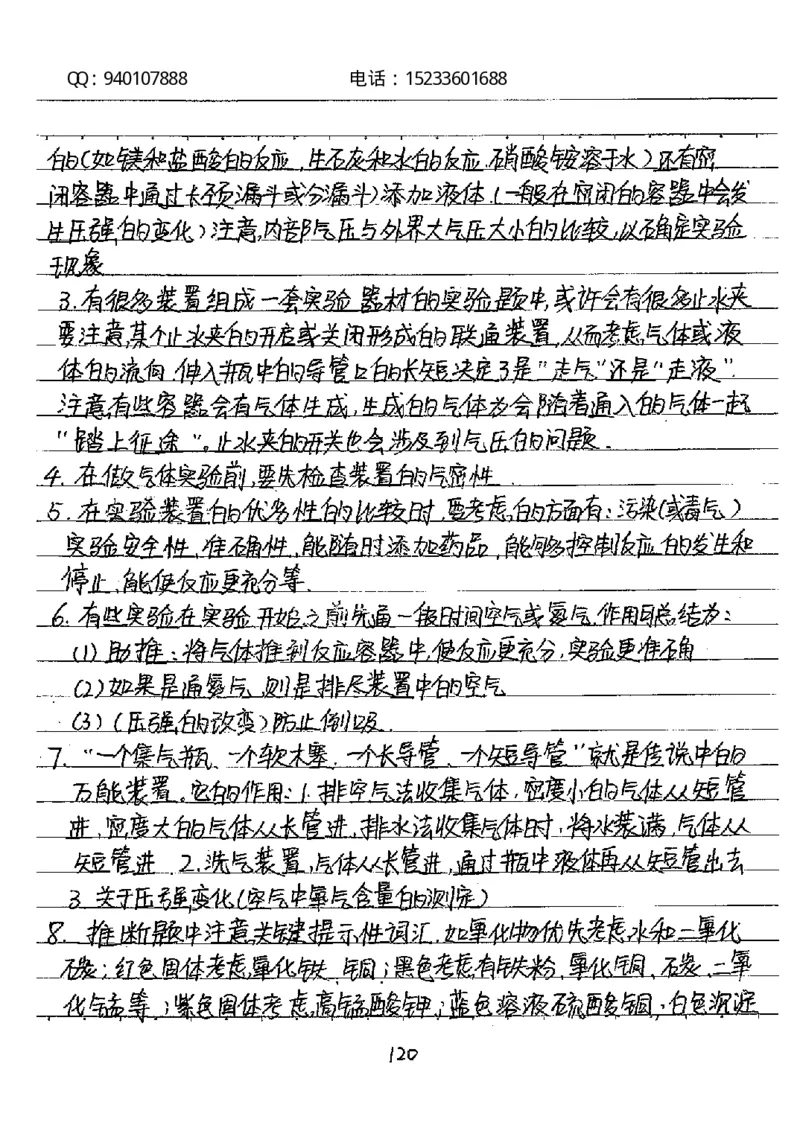 QQ：940107888 电话：15233601688
的(如镁和盐酸的反应,生石灰和水的反应.硝酸铵溶于水)还有密
闭容器中通过长颈漏斗或分漏斗)添加液体(一般在密闭的容器中会发
生压强的变化)注意,内部气压与外界大气压大小的比较,以确定实验
现象
3.有很多装置组成一套实验器材的实验题中,或许会有很多止水夹
要注意某个止水夹的开启或关闭形成的联通装置,从而考虑气体或液
体的流向.伸入瓶中的导管口的长短决定了是"走气"还是"走液".
注意,有些容器会有气体生成,生成的气体为会随着通入的气体一起
"踏上征途".止水夹的开关也会涉及到气压的问题.
4.在做气体实验前,要先检查装置的气密性
5.在实验装置的优劣性的比较时,要考虑的方面有:污染(或毒气)
实验安全性,准确性,能随时添加药品,能够控制反应的发生和
停止,能使反应更充分等.
6.有些实验在实验开始之前先通一段时间空气或氮气,作用可总结为:
(1)助推:将气体推到反应容器中,使反应更充分,实验更准确
(2)如果是通氮气,则是排尽装置中的空气
(3)(压强的改变)防止倒吸.
7."一个集气瓶、一个软木塞、一个长导管、一个短导管"就是传说中的
万能装置。它的作用:1.排空气法收集气体,密度小的气体从短管
进,密度大的气体从长管进,排水法收集气体时,将水装满,气体从
短管进 2.洗气装置,气体从长管进,通过瓶中液体再从短管出去
3.关于压强变化(空气中氧气含量的测定)
8.推断题中注意关键提示性词汇,如氧化物优先考虑水和二氧化
碳;红色固体考虑氧化铁、铜;黑色考虑有铁粉、氧化铜、碳、二氧
化锰等;紫色固体考虑高锰酸钾;蓝色溶液硫酸铜,白色沉淀
120